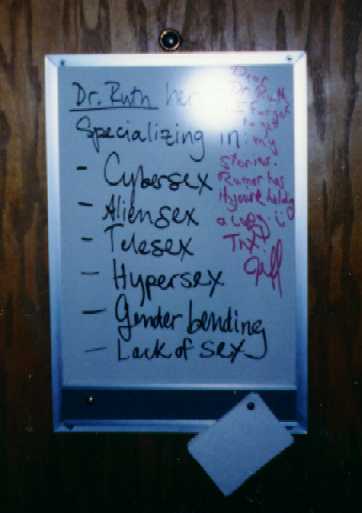 Dr. Ruth her
Specializing in:
- Cybersex
- Aliensex
- Telesex
- Hypersex
- Gender bending
- Lack of sex
Dear
Dr. Ruth
I forgot
my
stories.
Rumor has
it you're holding
a copy
Tnx!
Jeff